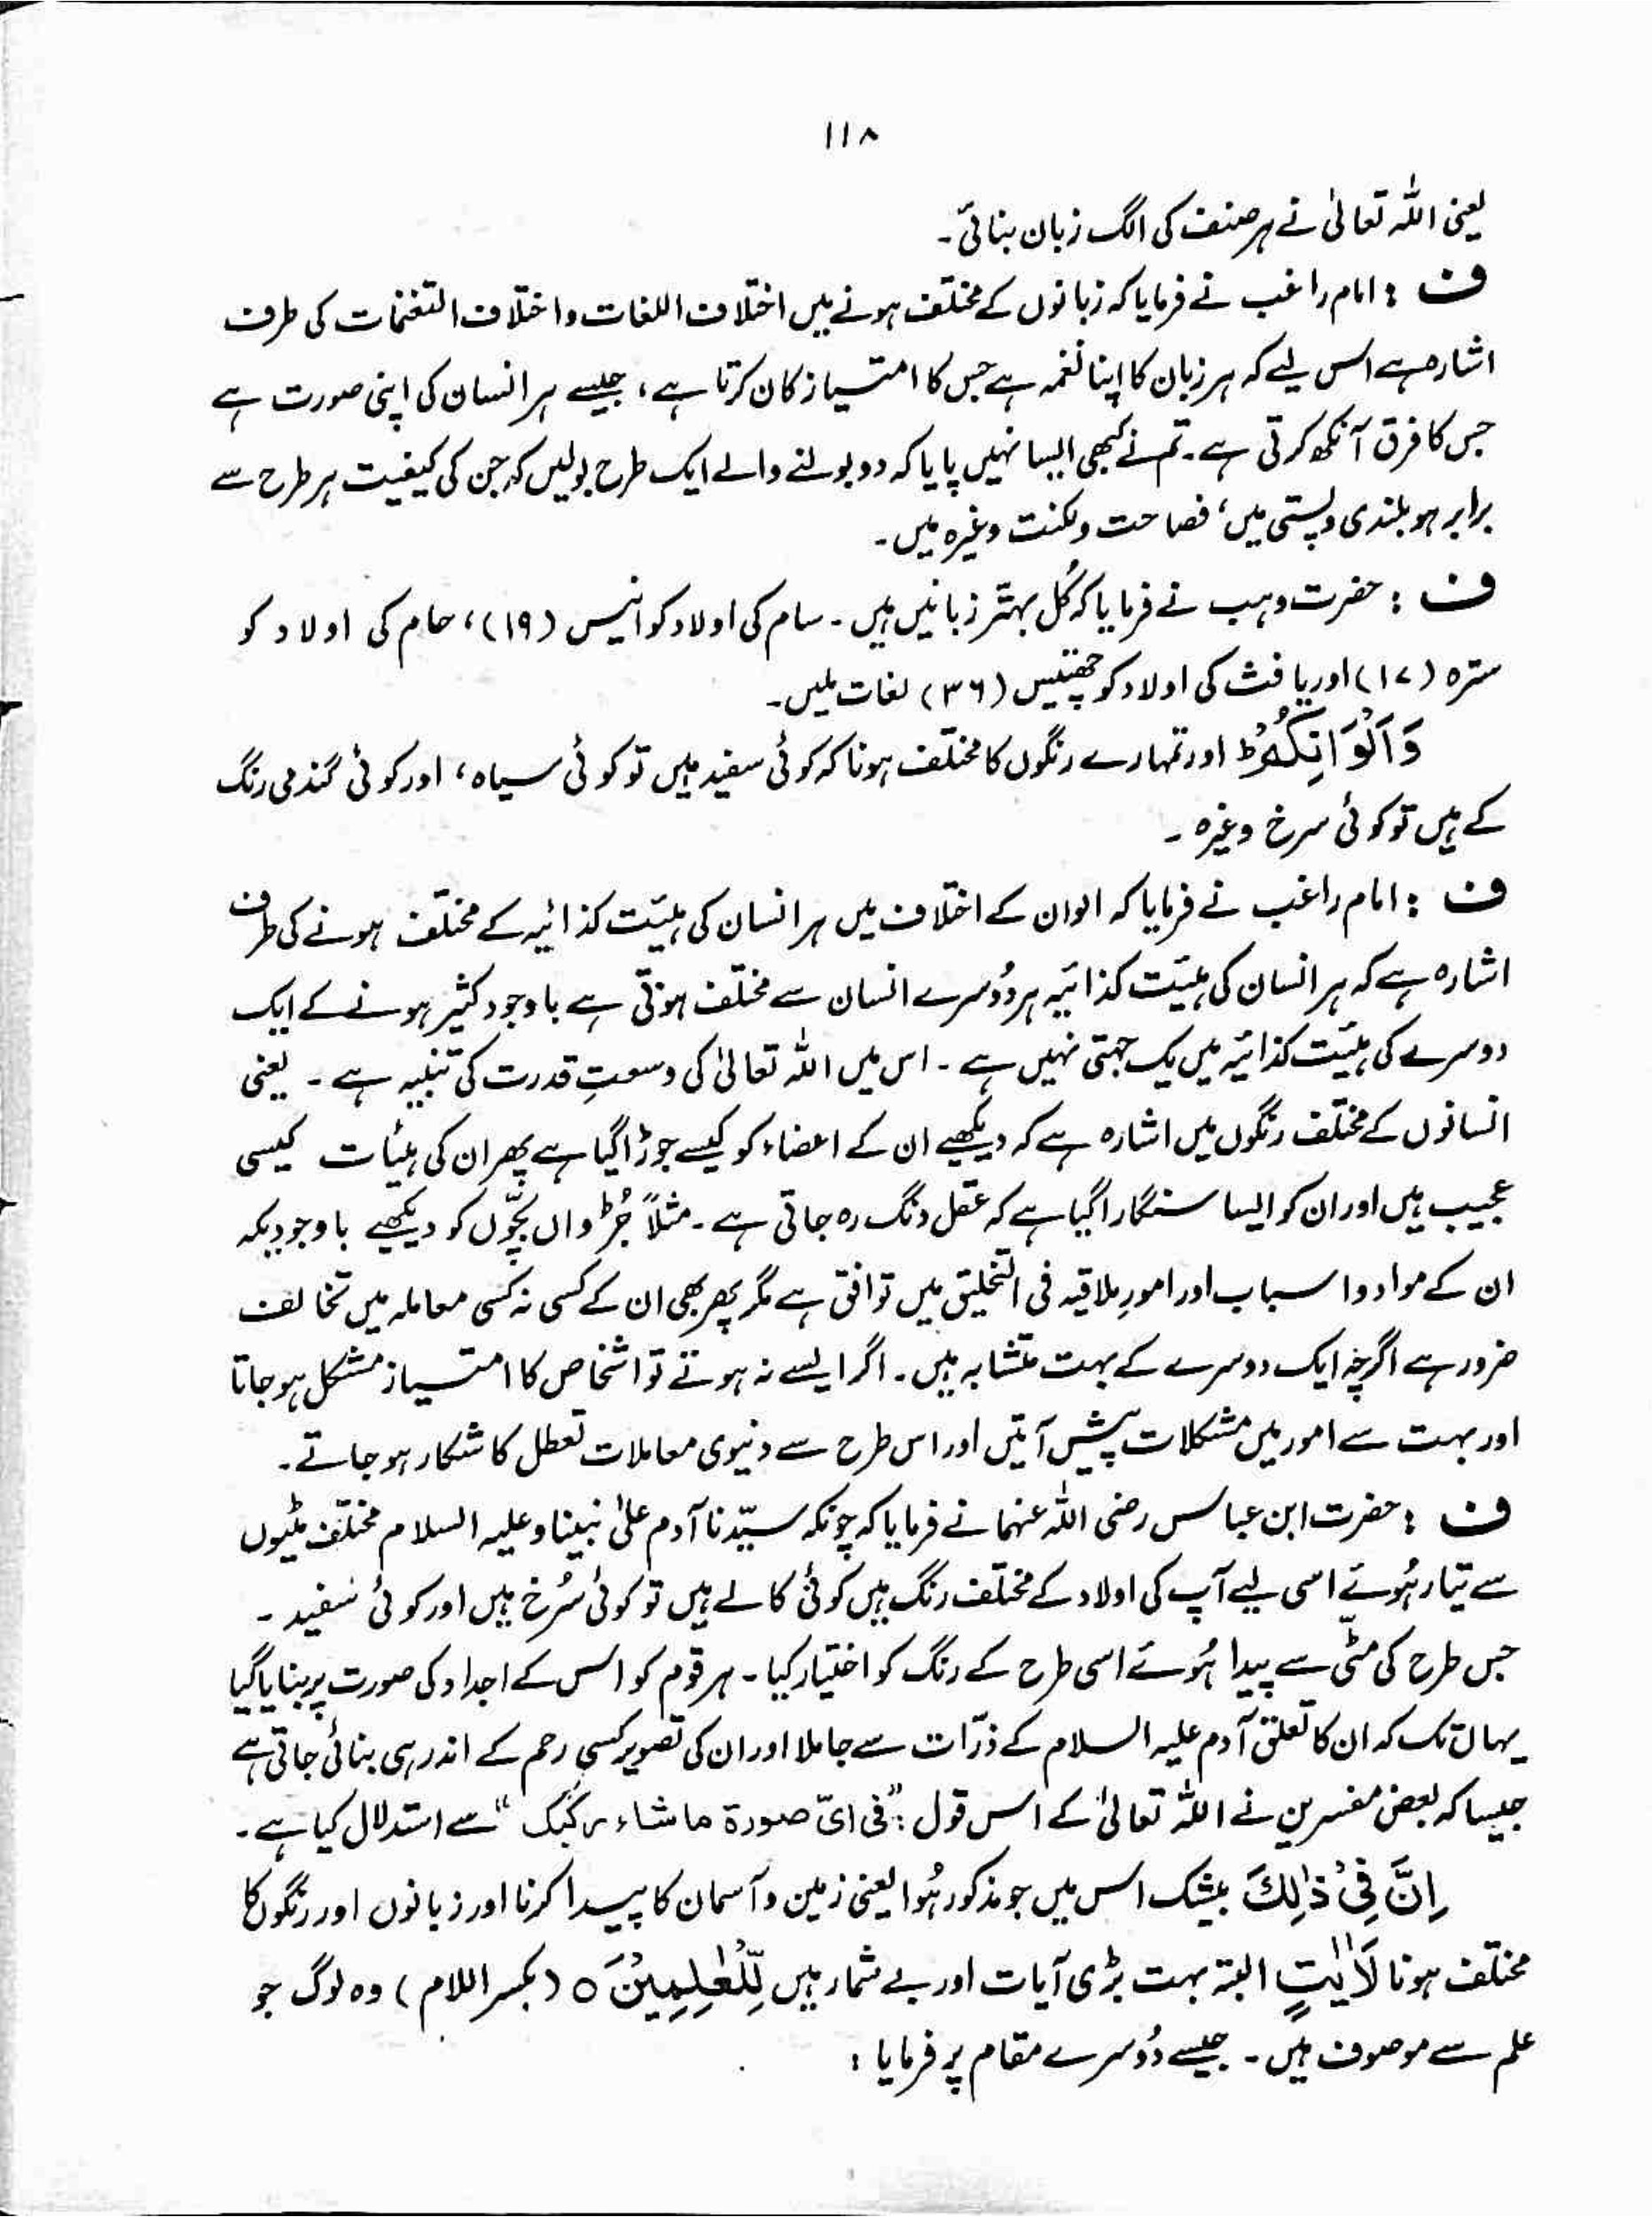 ۱۱۸
یعنی اللہ تعالیٰ نے ہر صنف کی الگ زبان بنائی۔
ف : امام راغب نے فرمایا کہ زبانوں کے مختلف ہونے میں اختلاف اللغات و اختلاف النغمات کی طرف
اشارہ ہے اس لیے کہ ہر زبان کا اپنا نغمہ ہے جس کا امتیاز کان کرتا ہے، جیسے ہر انسان کی اپنی صورت ہے
جس کا فرق آنکھ کرتی ہے۔ تم نے کبھی ایسا نہیں پایا کہ دو بولنے والے ایک طرح بولیں کہ جن کی کیفیت ہر طرح سے
برابر ہو بلندی و پستی میں، فصاحت و لکنت وغیرہ میں۔
ف : حضرت وہب نے فرمایا کہ کُل بہتّر زبانیں ہیں۔ سام کی اولاد کو انیس (۱۹)، حام کی اولاد کو
سترہ (۱۷) اور یافث کی اولاد کو چھتیس (۳۶) لغات ملیں۔
وَاَلْوَانِكُمْ ؕ اور تمہارے رنگوں کا مختلف ہونا کہ کوئی سفید ہیں تو کوئی سیاہ، اور کوئی گندمی رنگ
کے ہیں تو کوئی سرخ وغیرہ ۔
ف : امام راغب نے فرمایا کہ الوان کے اختلاف میں ہر انسان کی ہیئت کذائیہ کے مختلف ہونے کی طرف
اشارہ ہے کہ ہر انسان کی ہیئت کذائیہ ہر دُوسرے انسان سے مختلف ہوتی ہے باوجود کثیر ہونے کے ایک
دوسرے کی ہیئت کذائیہ میں یک جہتی نہیں ہے ۔ اس میں اللہ تعالیٰ کی وسعتِ قدرت کی تنبیہ ہے ۔ یعنی
انسانوں کے مختلف رنگوں میں اشارہ ہے کہ دیکھیے ان کے اعضاء کو کیسے جوڑا گیا ہے پھر ان کی ہیئات کیسی
عجیب ہیں اور ان کو ایسا سنگارا گیا ہے کہ عقل دنگ رہ جاتی ہے ۔ مثلاً جُڑواں بچّوں کو دیکھیے باوجودیکہ
ان کے مواد و اسباب اور امورِ ملاقیہ فی التخلیق میں توافق ہے مگر پھر بھی ان کے کسی نہ کسی معاملہ میں تخالف
ضرور ہے اگرچہ ایک دوسرے کے بہت متشابہ ہیں۔ اگر ایسے نہ ہوتے تو اشخاص کا امتیاز مشکل ہو جاتا
اور بہت سے امور میں مشکلات پیش آتیں اور اس طرح سے دنیوی معاملات تعطل کا شکار ہو جاتے۔
ف : حضرت ابن عباس رضی اللہ عنہما نے فرمایا کہ چونکہ سیّدنا آدم علیٰ نبینا وعلیہ السلام مختلف مٹیوں
سے تیار ہُوئے اسی لیے آپ کی اولاد کے مختلف رنگ ہیں کوئی کالے ہیں تو کوئی سُرخ ہیں اور کوئی سفید ۔
جس طرح کی مٹّی سے پیدا ہُوئے اسی طرح کے رنگ کو اختیار کیا۔ ہر قوم کو اس کے اجداد کی صورت پر بنایا گیا
یہاں تک کہ ان کا تعلق آدم علیہ السلام کے ذرّات سے جا ملا اور ان کی تصویر کسی رحم کے اندر ہی بنائی جاتی ہے
جیسا کہ بعض مفسرین نے اللہ تعالیٰ کے اس قول : "فی ایّ صورۃ ما شاء رکبک" سے استدلال کیا ہے۔
اِنَّ فِیْ ذٰلِكَ بیشک اس میں جو مذکور ہُوا یعنی زمین و آسمان کا پیدا کرنا اور زبانوں اور رنگوں کا
مختلف ہونا لَاٰیٰتٍ البتہ بہت بڑی آیات اور بے شمار ہیں لِّلْعٰلِمِیْنَ ○ (بکسر اللام) وہ لوگ جو
علم سے موصوف ہیں۔ جیسے دُوسرے مقام پر فرمایا :